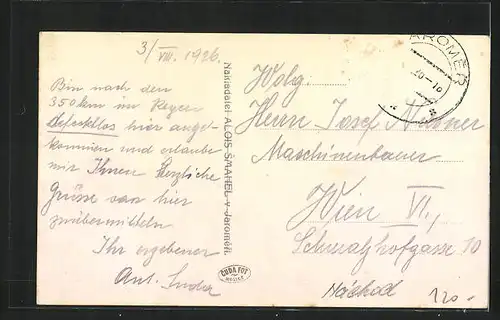 3/VIII. 1926.
Bin nach den
350 km im Regen
defektlos hier ange-
kommen und erlaube
mir Ihnen Herzliche
Grüsse von hier
zu übermitteln
Ihr ergebener
Ant.
Nakladatel ALOIS SMAHEL v Jaroměři.
AROMĚŘ
Wolg.
Herrn Josef
Maschinenbauer
Wien VI.,
Schmalzhofgasse 10
Náchod
120.-